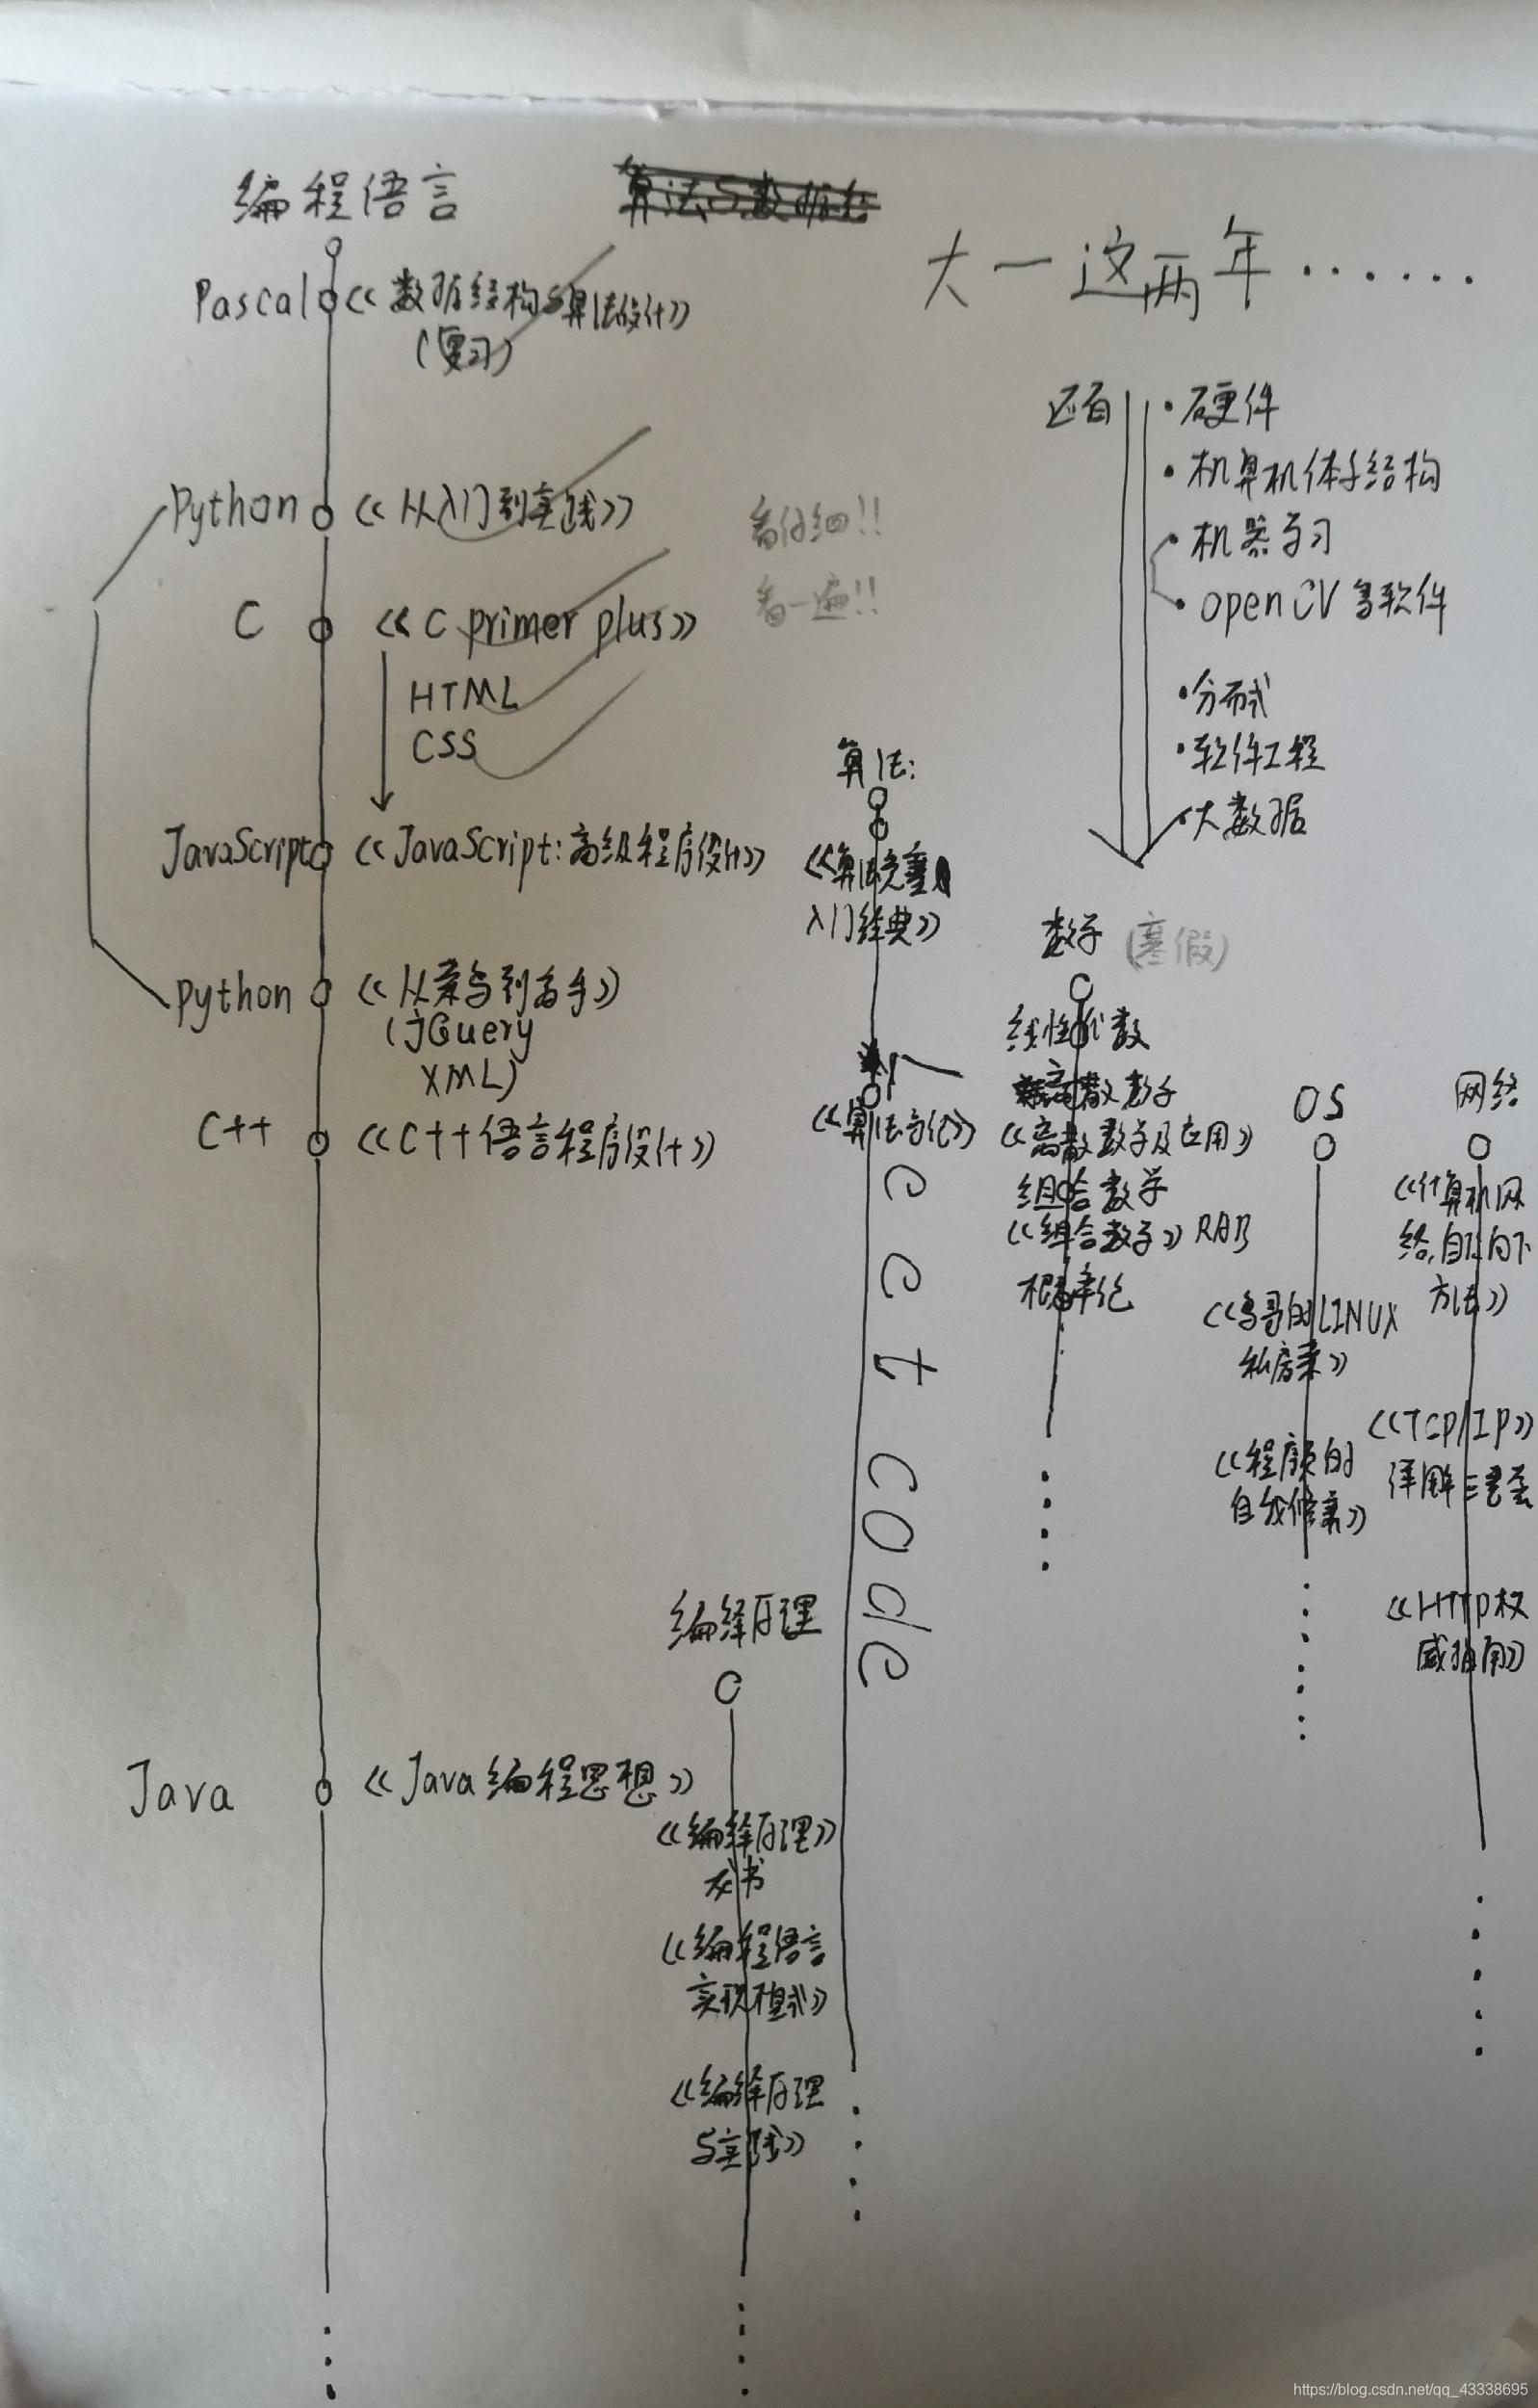 编程语言
大一这两年......
Pascal 《数据结构与算法设计》
(复习)
Python 《从入门到实践》
看仔细!!
C 《C primer plus》
看一遍!!
HTML
CSS
JavaScript 《JavaScript:高级程序设计》
Python 《从菜鸟到高手》
(jQuery
XML)
C++ 《C++语言程序设计》
Java 《Java编程思想》
还有
·硬件
·机算机体系结构
·机器学习
·openCV 等软件
·分布式
·软件工程
·大数据
算法:
《算法竞赛
入门经典》
《算法导论》
Leet code
数学 (寒假)
线性代数
离散数学
《离散数学及应用》
组合数学
《组合数学》
概率论
OS
《鸟哥的LINUX
私房菜》
《程序员的
自我修养》
网络
《计算机网
络,自顶向下
方法》
《TCP/IP》
详解三卷
《HTTP权
威指南》
编译原理
《编译原理》
龙书
《编程语言
实现模式》
《编译原理
与实践》
https://blog.csdn.net/qq_43338695